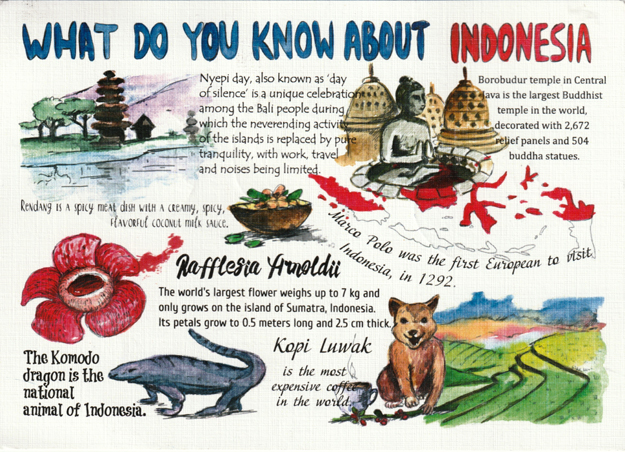 WHAT DO YOU KNOW ABOUT INDONESIA
Nyepi day, also known as 'day
of silence' is a unique celebration
among the Bali people during
which the neverending activity
of the islands is replaced by pure
tranquility, with work, travel
and noises being limited.
Borobudur temple in Central
Java is the largest Buddhist
temple in the world,
decorated with 2,672
relief panels and 504
buddha statues.
Rendang is a spicy meat dish with a creamy, spicy,
flavorful coconut milk sauce.
Marco Polo was the first European to visit
Indonesia, in 1292.
Rafflesia Arnoldii
The world's largest flower weighs up to 7 kg and
only grows on the island of Sumatra, Indonesia.
Its petals grow to 0.5 meters long and 2.5 cm thick.
The Komodo
dragon is the
national
animal of Indonesia.
Kopi Luwak
is the most
expensive coffee
in the world.